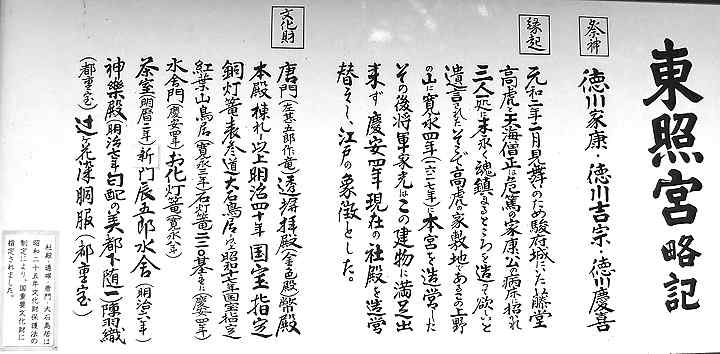 東照宮略記
祭神
徳川家康・徳川吉宗・徳川慶喜
縁起
元和二年二月見舞のため駿府城にいた藤堂
高虎と天海僧正は危篤の家康公の病床に招かれ
三人一処に末永く魂鎮まるところを造って欲しいと
遺言された そこで高虎の家敷地であるこの上野
の山に寛永四年(一六二七年)に本宮を造営した
その後将軍家光はこの建物に満足出
来ず慶安四年現在の社殿を造営
替えし、江戸の象徴とした。
文化財
唐門(左甚五郎作竜)透塀拝殿(金色殿)幣殿
本殿棟札以上明治四十年国宝指定
銅灯篭表参道大石鳥居以上昭和十七年国宝指定
紅葉山鳥居(寛永三年)石灯篭二三〇基(慶安四年)
水舎門(慶安四年)お化灯篭(寛永八年)
茶室(明暦二年)新門辰五郎水舎(明治七年)
神楽殿(明治七年)勾配の美都下随一陣羽織
(都重宝)辻ヶ花染胴服(都重宝)
社殿・透塀・唐門・大石鳥居は
昭和二十五年文化財保護法の
制定により、国重要文化財に
指定されました。